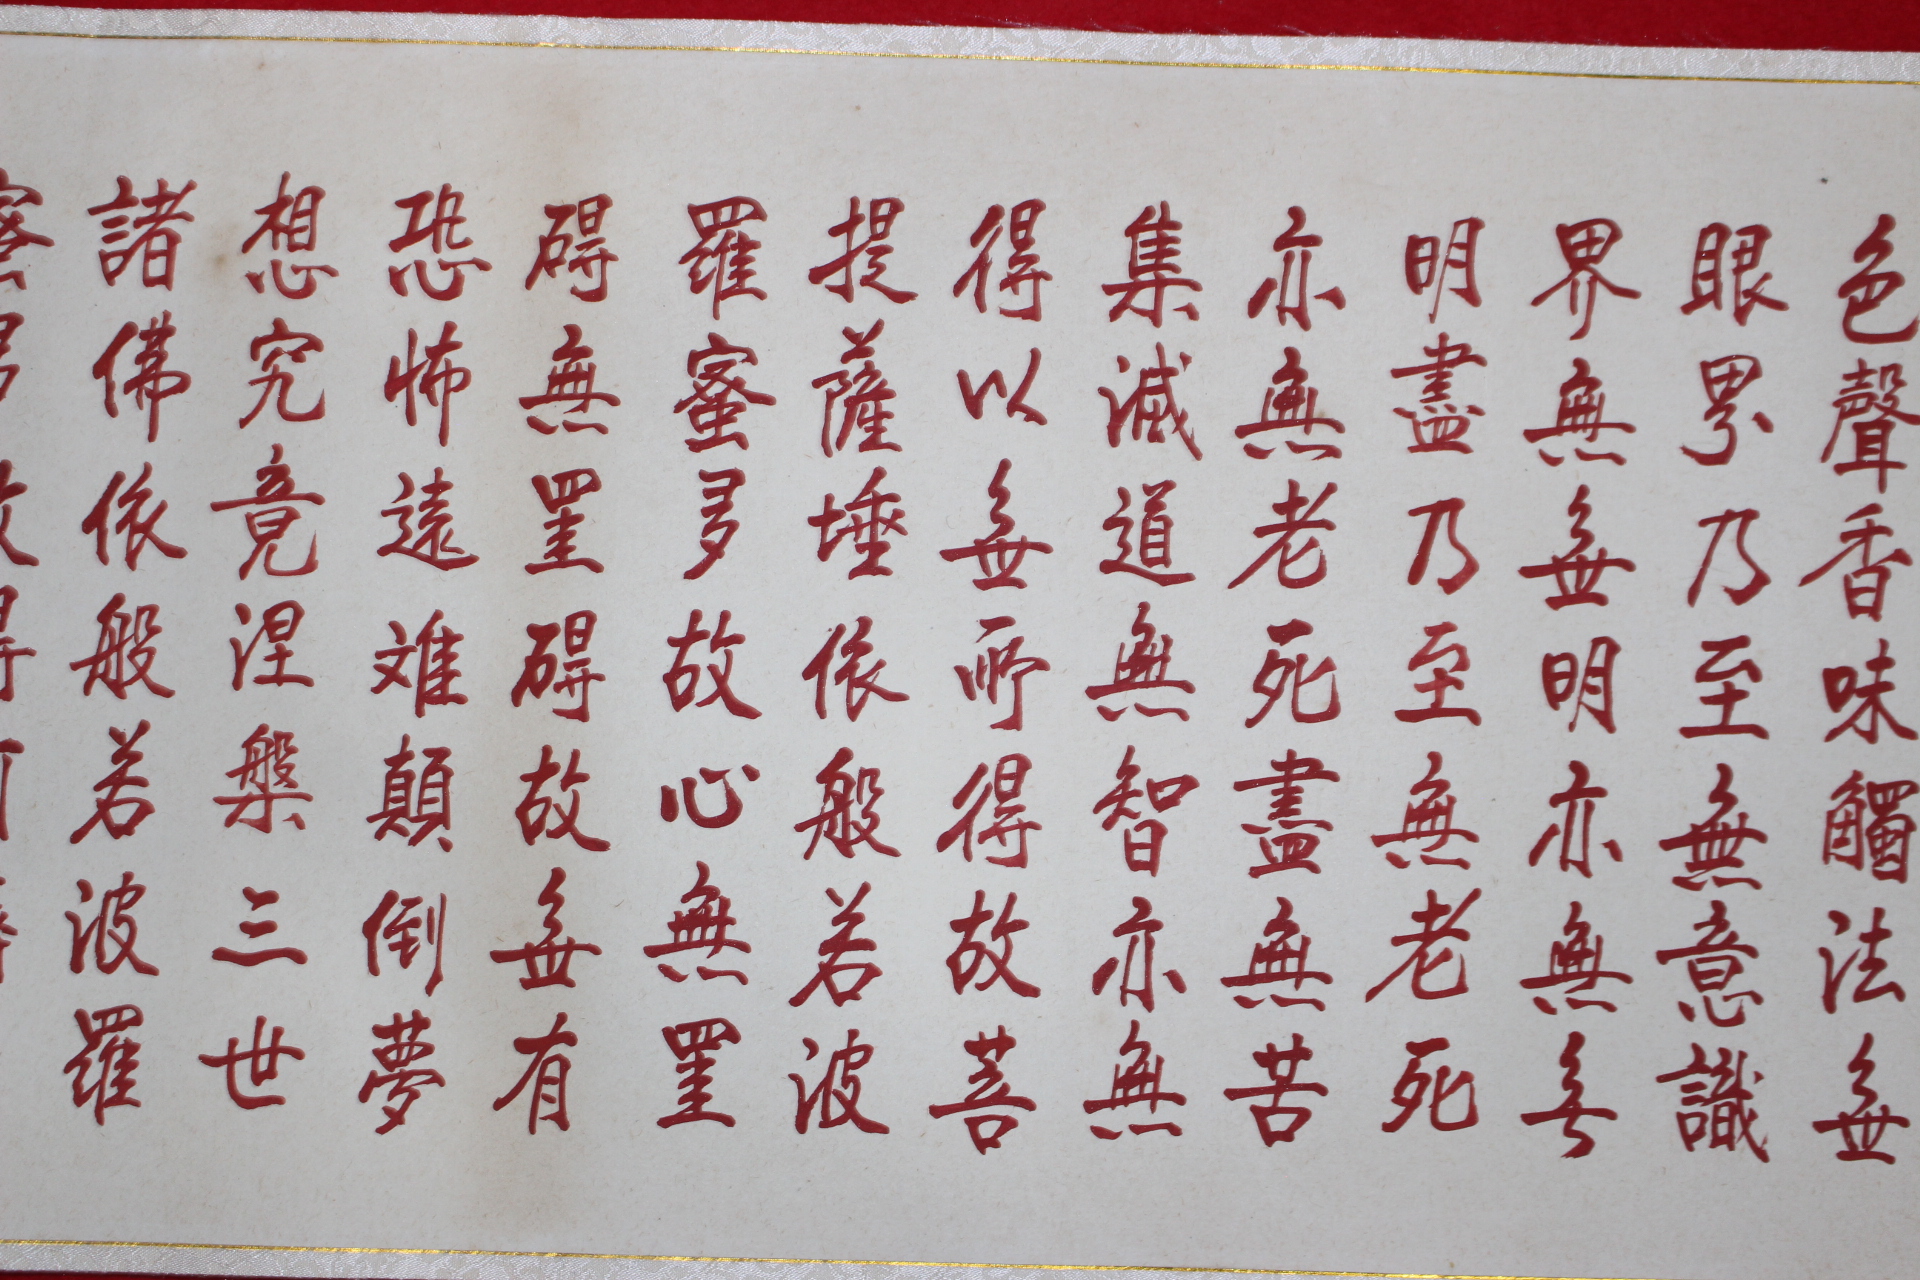 色聲香味觸法無
眼界乃至無意識
界無無明亦無無
明盡乃至無老死
亦無老死盡無苦
集滅道無智亦無
得以無所得故菩
提薩埵依般若波
羅蜜多故心無罣
碍無罣碍故無有
恐怖遠離顛倒夢
想究竟涅槃三世
諸佛依般若波羅